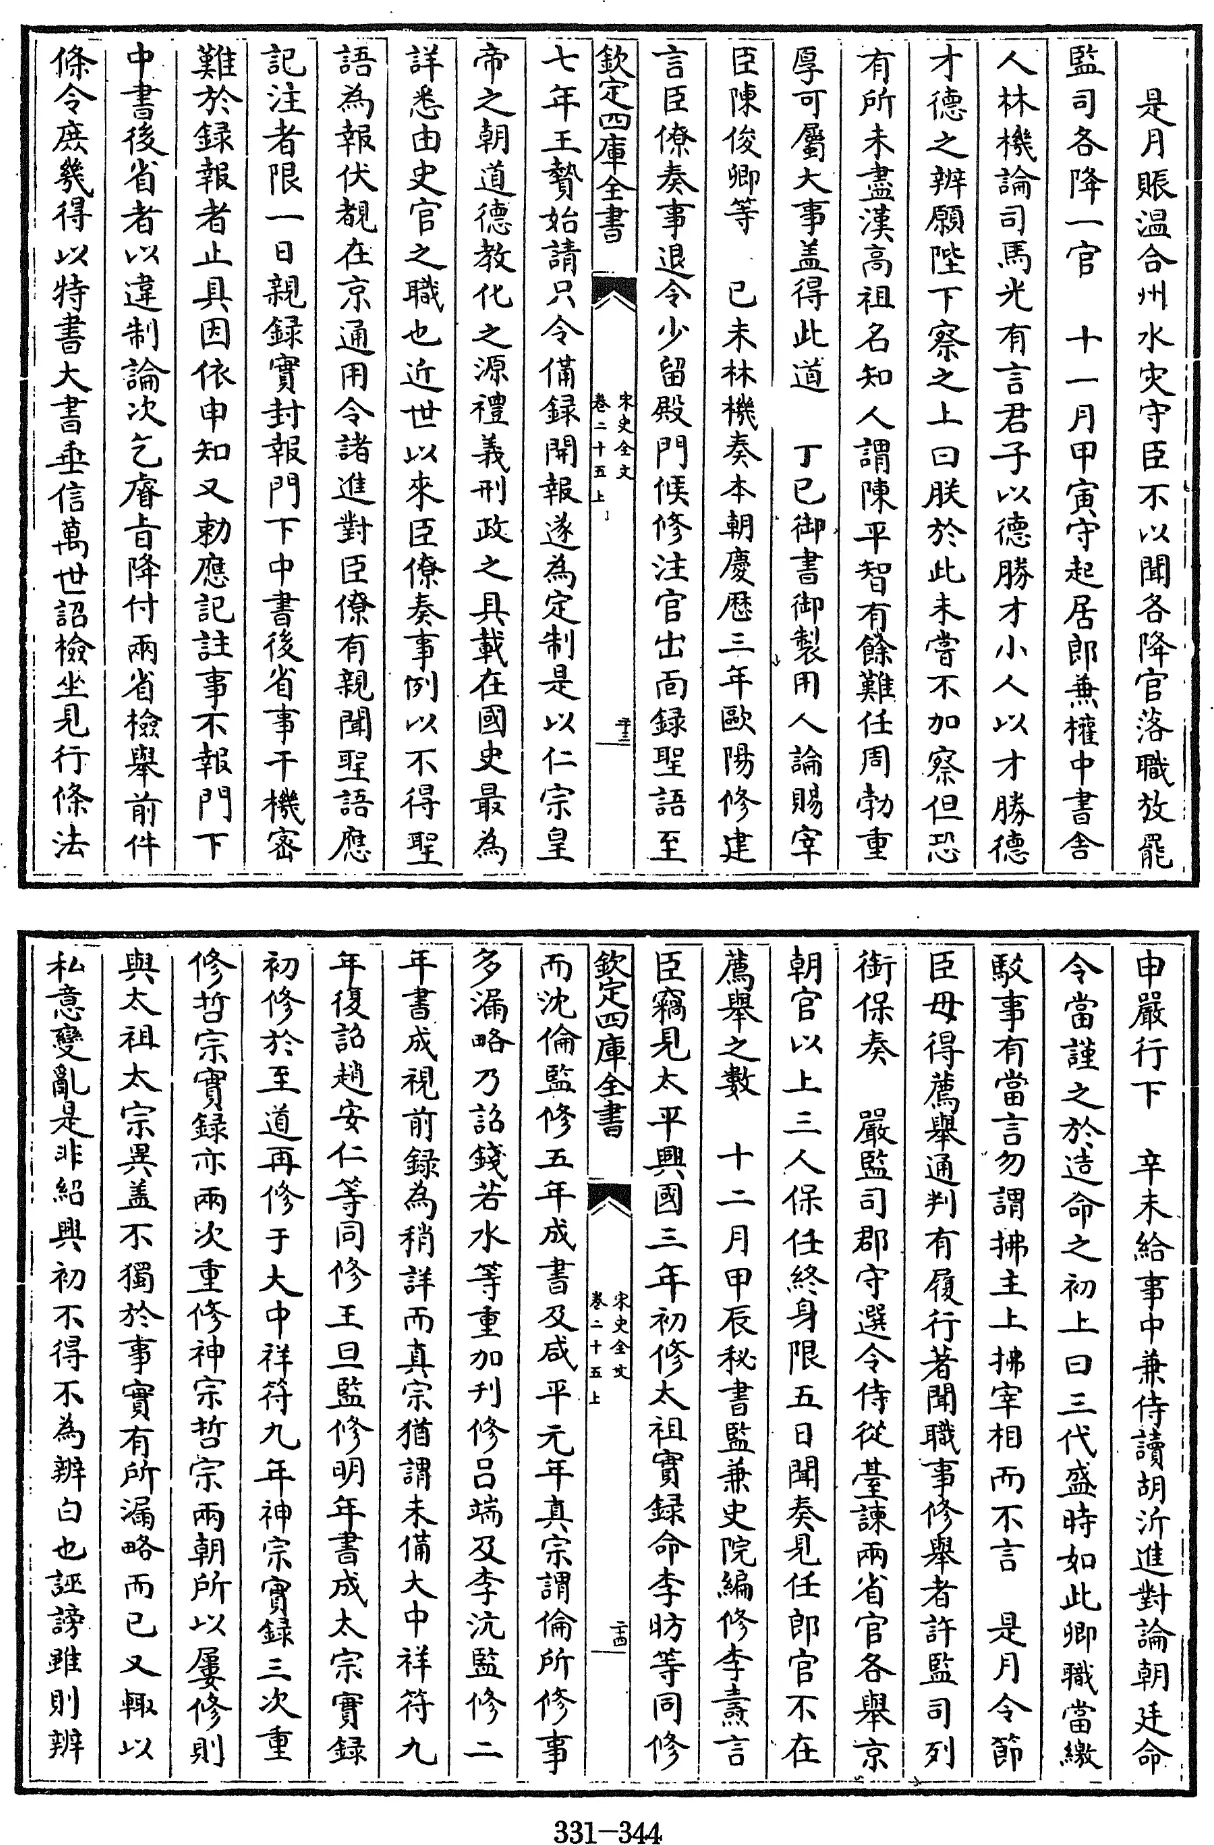 是月賑温台州水灾守臣不以聞各降官落職放罷
監司各降一官　十一月甲寅守起居郎兼權中書舍
人林機論司馬光有言君子以德勝才小人以才勝德
才德之辨願陛下察之上曰朕於此未嘗不加察但恐
有所未盡漢高祖名知人謂陳平智有餘難任周勃重
厚可屬大事盖得此道　丁巳御書御製用人論賜宰
臣陳俊卿等　己未林機奏本朝慶厯三年歐陽修建
言臣僚奏事退令少留殿門候修注官出面録聖語至
欽定四庫全書
宋史全文
卷二十五上
二十三
七年王贄始請只令備録關報遂為定制是以仁宗皇
帝之朝道德教化之源禮義刑政之具載在國史最為
詳悉由史官之職也近世以來臣僚奏事例以不得聖
語為報伏覩在京通用令諸進對臣僚有親聞聖語應
記注者限一日親録實封報門下中書後省事干機密
難於録報者止具因依申知又勅應記註事不報門下
中書後省者以違制論次乞睿旨降付兩省檢舉前件
條令庶幾得以特書大書垂信萬世詔檢坐見行條法
申嚴行下　辛未給事中兼侍讀胡沂進對論朝廷命
令當謹之於造命之初上曰三代盛時如此卿職當繳
駮事有當言勿謂拂主上拂宰相而不言　是月令節
臣毋得薦舉通判有履行著聞職事修舉者許監司列
銜保奏　嚴監司郡守選令侍從臺諫兩省官各舉京
朝官以上三人保任終身限五日聞奏見任郎官不在
薦舉之數　十二月甲辰秘書監兼史院編修李燾言
臣竊見太平興國三年初修太祖實録命李昉等同修
欽定四庫全書
宋史全文
卷二十五上
二十四
而沈倫監修五年成書及咸平元年真宗謂倫所修事
多漏略乃詔錢若水等重加刋修吕端及李沆監修二
年書成視前録為稍詳而真宗猶謂未備大中祥符九
年復詔趙安仁等同修王旦監修明年書成太宗實録
初修於至道再修于大中祥符九年神宗實録三次重
修哲宗實録亦兩次重修神宗哲宗兩朝所以屢修則
與太祖太宗異盖不獨於事實有所漏略而已又輙以
私意變亂是非紹興初不得不為辨白也誣謗雖則辨
331-344